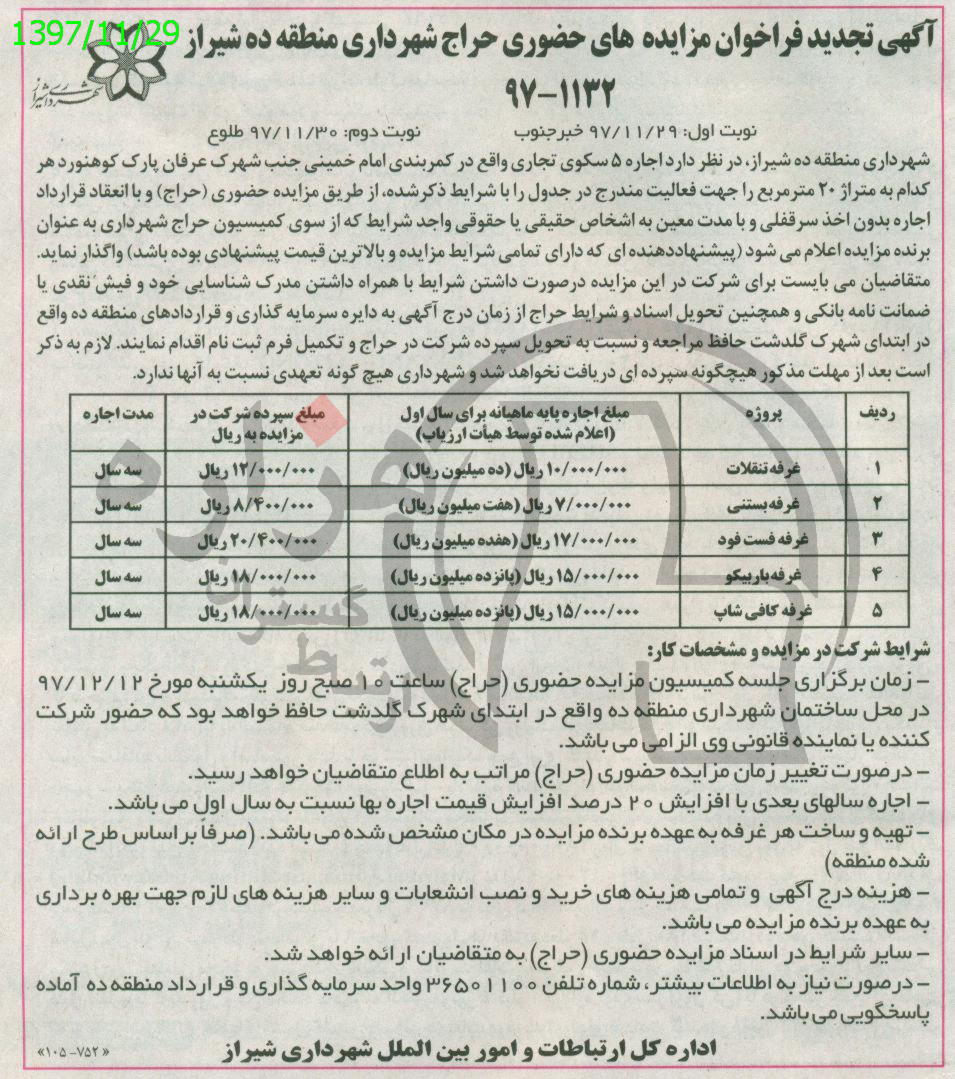 1397/11/29
آگهی تجدید فراخوان مزایده های حضوری حراج شهرداری منطقه ده شیراز
۹۷-۱۱۳۲
شهرداری شیراز
نوبت اول: ۹۷/۱۱/۲۹ خبرجنوب نوبت دوم: ۹۷/۱۱/۳۰ طلوع
شهرداری منطقه ده شیراز، در نظر دارد اجاره ۵ سکوی تجاری واقع در کمربندی امام خمینی جنب شهرک عرفان پارک کوهنورد هر
کدام به متراژ ۲۰ مترمربع را جهت فعالیت مندرج در جدول را با شرایط ذکر شده، از طریق مزایده حضوری (حراج) و با انعقاد قرارداد
اجاره بدون اخذ سرقفلی و با مدت معین به اشخاص حقیقی یا حقوقی واجد شرایط که از سوی کمیسیون حراج شهرداری به عنوان
برنده مزایده اعلام می شود (پیشنهاددهنده ای که دارای تمامی شرایط مزایده و بالاترین قیمت پیشنهادی بوده باشد) واگذار نماید.
متقاضیان می بایست برای شرکت در این مزایده درصورت داشتن شرایط با همراه داشتن مدرک شناسایی خود و فیش نقدی یا
ضمانت نامه بانکی و همچنین تحویل اسناد و شرایط حراج از زمان درج آگهی به دایره سرمایه گذاری و قراردادهای منطقه ده واقع
در ابتدای شهرک گلدشت حافظ مراجعه و نسبت به تحویل سپرده شرکت در حراج و تکمیل فرم ثبت نام اقدام نمایند. لازم به ذکر
است بعد از مهلت مذکور هیچگونه سپرده ای دریافت نخواهد شد و شهرداری هیچ گونه تعهدی نسبت به آنها ندارد.
ردیف پروژه مبلغ اجاره پایه ماهیانه برای سال اول (اعلام شده توسط هیأت ارزیاب) مبلغ سپرده شرکت در مزایده به ریال مدت اجاره
۱ غرفه تنقلات ۱۰/۰۰۰/۰۰۰ ریال (ده میلیون ریال) ۱۲/۰۰۰/۰۰۰ ریال سه سال
۲ غرفه بستنی ۷/۰۰۰/۰۰۰ ریال (هفت میلیون ریال) ۸/۴۰۰/۰۰۰ ریال سه سال
۳ غرفه فست فود ۱۷/۰۰۰/۰۰۰ ریال (هفده میلیون ریال) ۲۰/۴۰۰/۰۰۰ ریال سه سال
۴ غرفه باربیکو ۱۵/۰۰۰/۰۰۰ ریال (پانزده میلیون ریال) ۱۸/۰۰۰/۰۰۰ ریال سه سال
۵ غرفه کافی شاپ ۱۵/۰۰۰/۰۰۰ ریال (پانزده میلیون ریال) ۱۸/۰۰۰/۰۰۰ ریال سه سال
شرایط شرکت در مزایده و مشخصات کار:
- زمان برگزاری جلسه کمیسیون مزایده حضوری (حراج) ساعت ۱۰ صبح روز یکشنبه مورخ ۹۷/۱۲/۱۲
در محل ساختمان شهرداری منطقه ده واقع در ابتدای شهرک گلدشت حافظ خواهد بود که حضور شرکت
کننده یا نماینده قانونی وی الزامی می باشد.
- درصورت تغییر زمان مزایده حضوری (حراج) مراتب به اطلاع متقاضیان خواهد رسید.
- اجاره سالهای بعدی با افزایش ۲۰ درصد افزایش قیمت اجاره بها نسبت به سال اول می باشد.
- تهیه و ساخت هر غرفه به عهده برنده مزایده در مکان مشخص شده می باشد. (صرفاً براساس طرح ارائه
شده منطقه)
- هزینه درج آگهی و تمامی هزینه های خرید و نصب انشعابات و سایر هزینه های لازم جهت بهره برداری
به عهده برنده مزایده می باشد.
- سایر شرایط در اسناد مزایده حضوری (حراج) به متقاضیان ارائه خواهد شد.
- درصورت نیاز به اطلاعات بیشتر، شماره تلفن ۳۶۵۰۱۱۰۰ واحد سرمایه گذاری و قرارداد منطقه ده آماده
پاسخگویی می باشد.
اداره کل ارتباطات و امور بین الملل شهرداری شیراز
«۱۰۵-۷۵۲»